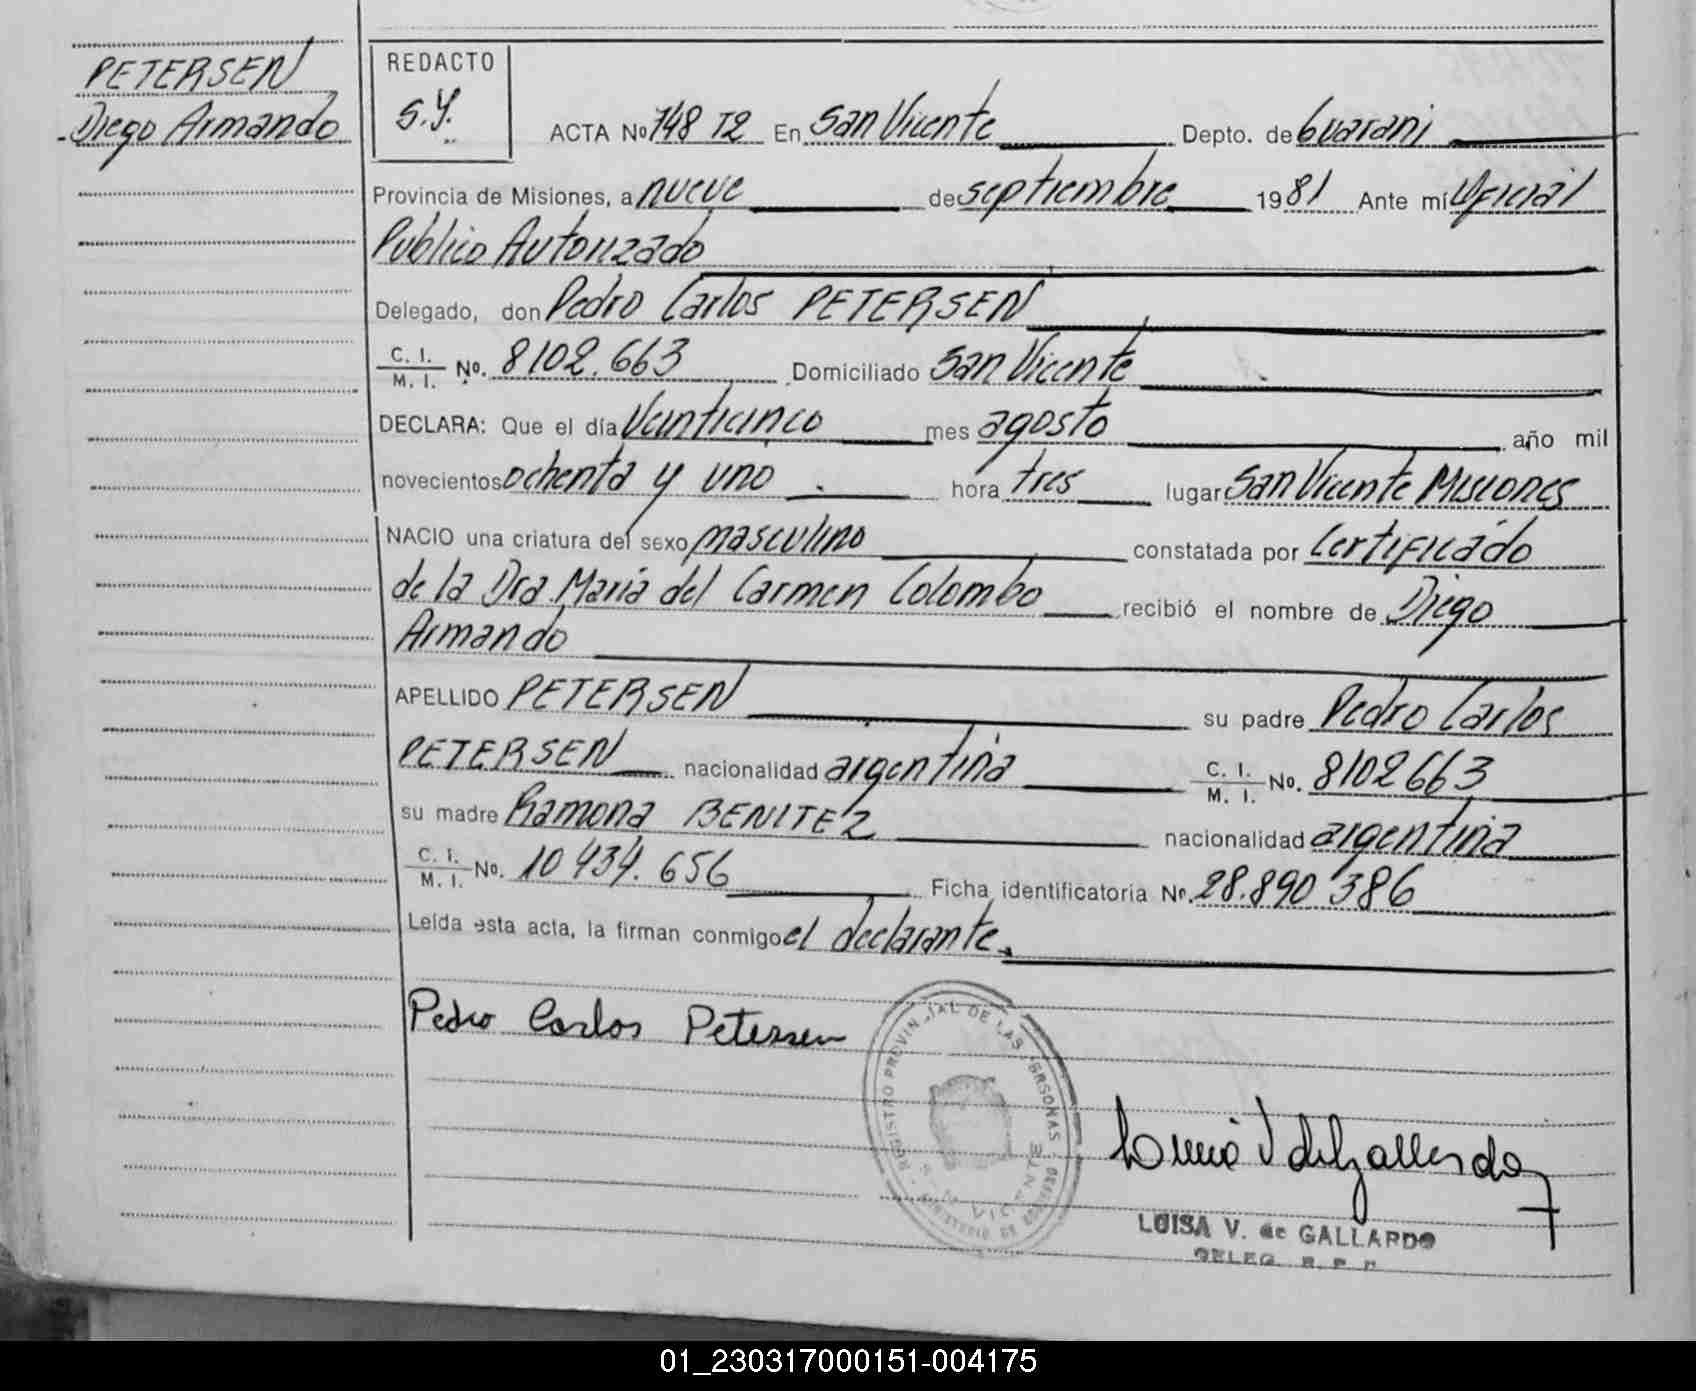 PETERSEN
Diego Armando
REDACTO
S.Y.
ACTA No 748 T2 En San Vicente Depto. de Guarani
Provincia de Misiones, a nueve de septiembre 1981 Ante mi Oficial
Publico Autorizado
Delegado, don Pedro Carlos PETERSEN
C. I. / M. I. No. 8102.663 Domiciliado San Vicente
DECLARA: Que el día Veinticinco mes agosto año mil
novecientos ochenta y uno . hora tres lugar San Vicente Misiones
NACIO una criatura del sexo masculino constatada por Certificado
de la Dra Maria del Carmen Colombo recibió el nombre de Diego
Armando
APELLIDO PETERSEN su padre Pedro Carlos
PETERSEN nacionalidad argentina C. I. / M. I. No. 8102663
su madre Ramona BENITEZ nacionalidad argentina
C. I. / M. I. No. 10 434.656 Ficha identificatoria No. 28.890 386
Leida esta acta, la firman conmigo el declarante.
Pedro Carlos Petersen
REGISTRO PROVINCIAL DE LAS PERSONAS
VICENTE
MINISTERIO DE
LUISA V. de GALLARDO
DELEG. R. P. P.
01_230317000151-004175